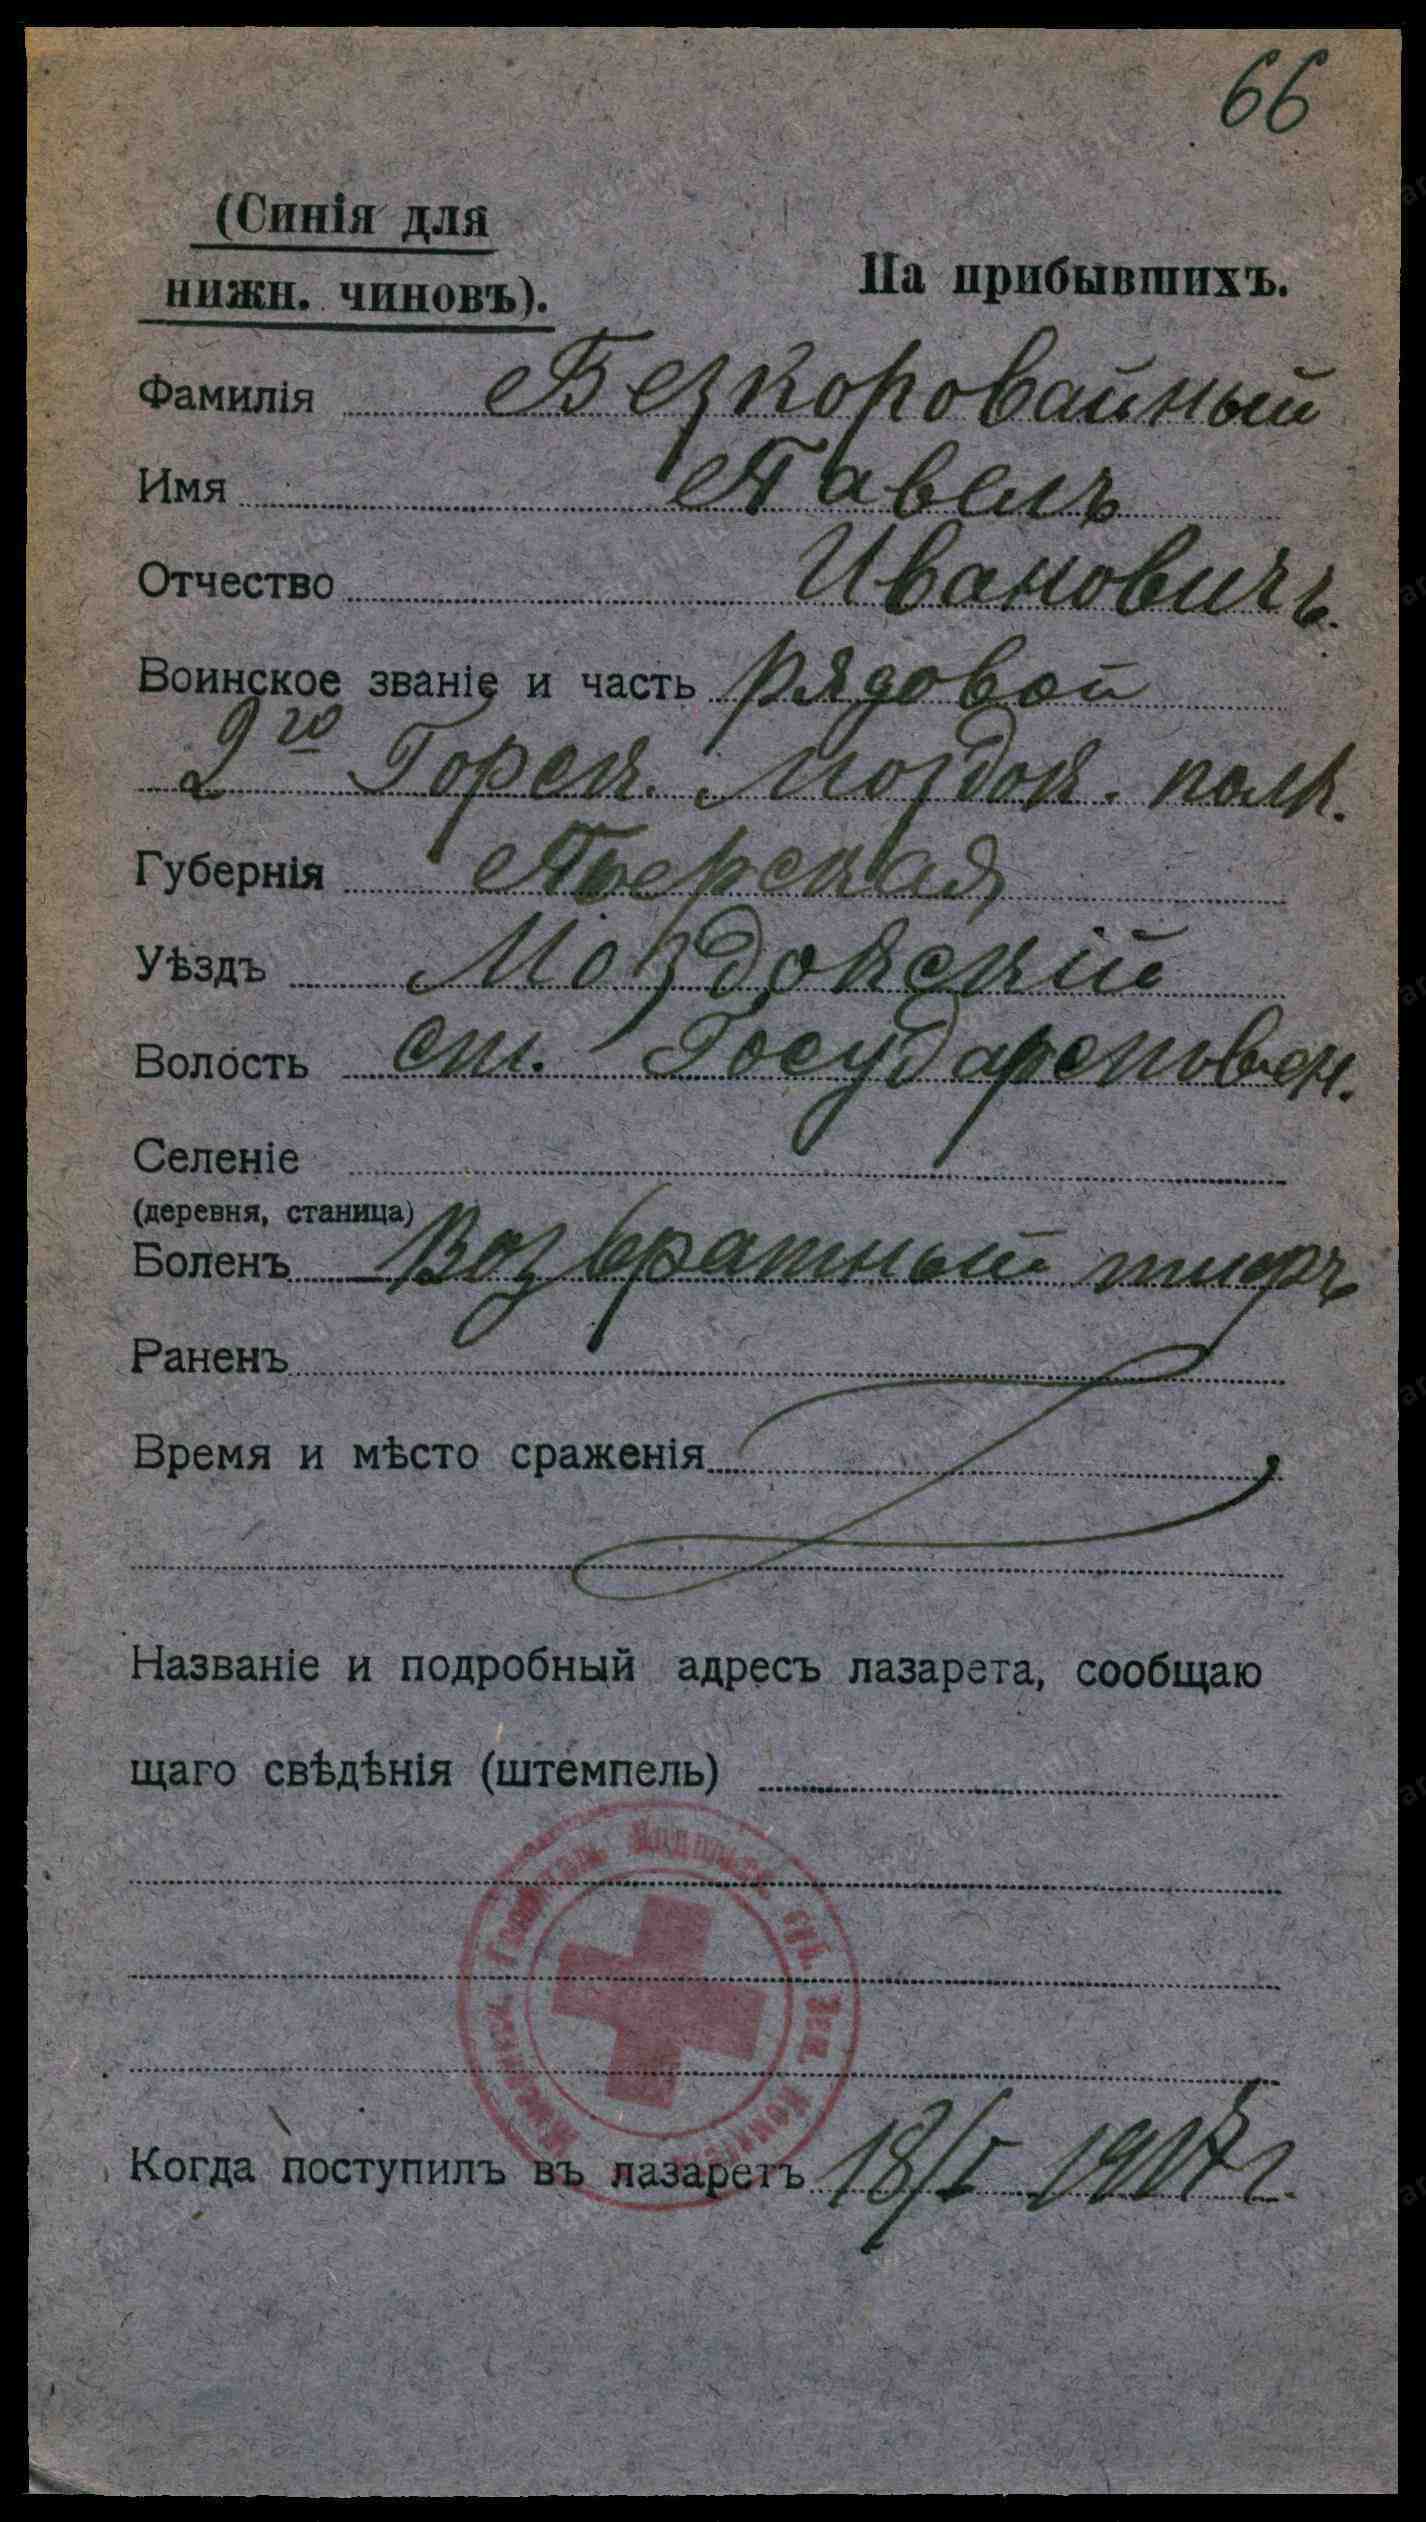 66
(Синія для
нижн. чиновъ).
На прибывшихъ.
Фамилія Безкоровайный
Имя Павелъ
Отчество Ивановичъ.
Воинское званіе и часть рядовой
2го Горск. Моздок. полк.
Губернія Терская
Уѣздъ Моздокскій
Волость ст. Государствен.
Селеніе
(деревня, станица)
Боленъ Возвратный тифъ
Раненъ
Время и мѣсто сраженія
Названіе и подробный адресъ лазарета, сообщаю
щаго свѣдѣнія (штемпель)
Госпиталь губ. Зем.
Когда поступилъ въ лазаретъ 18/I 1917 г.